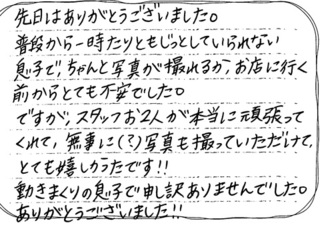 先日はありがとうございました。
普段から一時たりともじっとしていられない
息子で、ちゃんと写真が撮れるか、お店に行く
前からとても不安でした。
ですが、スタッフお2人が本当に頑張って
くれて、無事に(?)写真も撮っていただけて、
とても嬉しかったです!!
動きまくりの息子で申し訳ありませんでした。
ありがとうございました!!